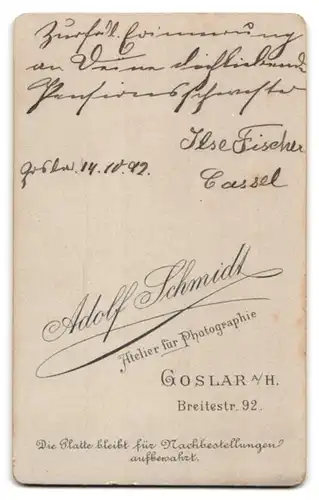 Zur frdl. Erinnerung
an Deine dichliebende
Pensionsschwester
Ilse Fischer
Goslar. 14.10.92.
Cassel
Adolf Schmidt
Atelier für Photographie
GOSLAR A/H.
Breitestr. 92.
Die Platte bleibt für Nachbestellungen
aufbewahrt.